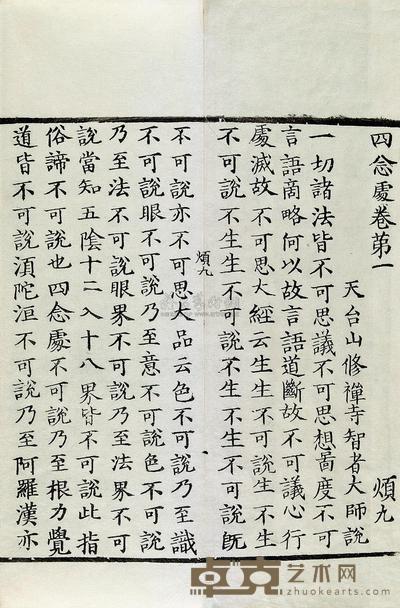 四念處卷第一
天台山修禪寺智者大師說 煩九
一切諸法皆不可思議不可思想啚度不可
言語商略何以故言語道斷故不可議心行
處滅故不可思大經云生生不可說生不生
不可說不生生不可說不生不生不可說既
煩九
不可說亦不可思大品云色不可說乃至識
不可說眼不可說乃至意不可說色不可說
乃至法不可說眼界不可說乃至法界不可
說當知五陰十二入十八界皆不可說此指
俗諦不可說也四念處不可說乃至根力覺
道皆不可說湏陀洹不可說乃至阿羅漢亦
卓克艺术网
zhuokearts.com